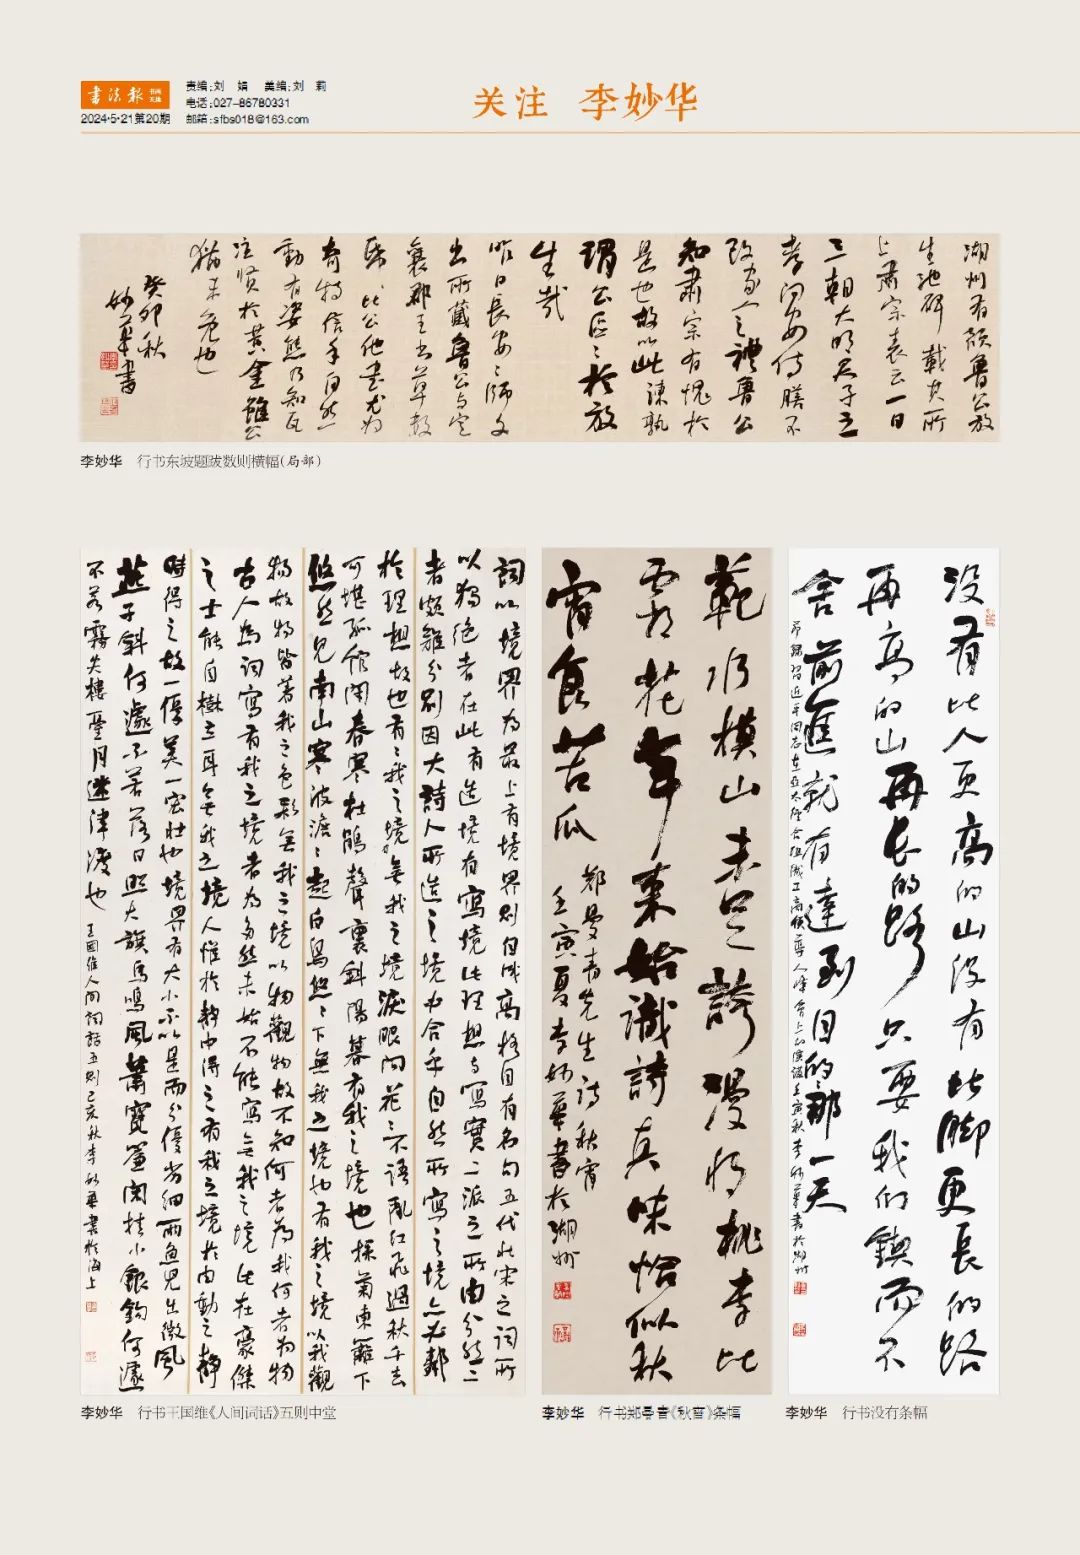 书法报 书画天地
2024·5·21第20期
责编:刘 娟 美编:刘 莉
电话:027-86780331
邮箱:sfbs018@163.com
关注 李妙华
湖州有颜魯公放
生池碑載其所
上肅宗表云一日
三朝大明天子之
孝问安侍膳不
改家人之禮魯公
知肅宗有愧於
是也故以此諫孰
謂公區々於放
生哉
昨日長安々師文
出所藏魯公与定
襄郡王书草数
紙比公他書尤为
奇特信手自然
動有姿態乃知瓦
注贤於黄金雖公
猶未免也
癸卯秋
妙華書
李妙华 行书东坡题跋数则横幅(局部)
詞以境界为最上有境界则自成高格自有名句五代北宋之词所
以獨绝者在此有造境有寫境此理想与寫實二派之所由分然二
者颇難分别因大詩人所造之境必合乎自然所寫之境亦必鄰
於理想故也有々我之境々無我之境淚眼问花々不語亂红飛過秋千去
可堪孤馆闭春寒杜鹃聲裏斜陽暮有我之境也採菊東籬下
悠然見南山寒波澹々起白鸟悠々下無我之境也有我之境以我觀
物故物皆著我之色彩無我之境以物觀物故不知何者為我何者为物
古人為词寫有我之境者为多然未始不能寫無我之境此在豪傑
之士能自樹立耳無我之境人惟於靜中得之有我之境於由動之靜
時得之故一優美一宏壯也境界有大小不以是而分優劣细雨魚児出微風
燕子斜何遽不若落日照大旗馬鳴風蕭々寶簾闲挂小銀鈎何遽
不若霧失樓臺月迷津渡也
王國维人间詞話五则己亥秋李妙華書於海上
李妙华 行书王国维《人间词话》五则中堂
範水模山未足誇漫将桃李比
霜花年来始識詩真味恰似秋
宵食苦瓜
郑曼青先生诗秋宵
壬寅夏李妙華書於湖州
李妙华 行书郑曼青《秋宵》条幅
没有比人更高的山没有比脚更長的路
再高的山再长的路只要我们鍥而不
舍前進就有達到目的那一天
节錄习近平同志在亚太经合组織工商领導人峰會上的演講壬寅秋李妙華書於湖州
李妙华 行书没有条幅